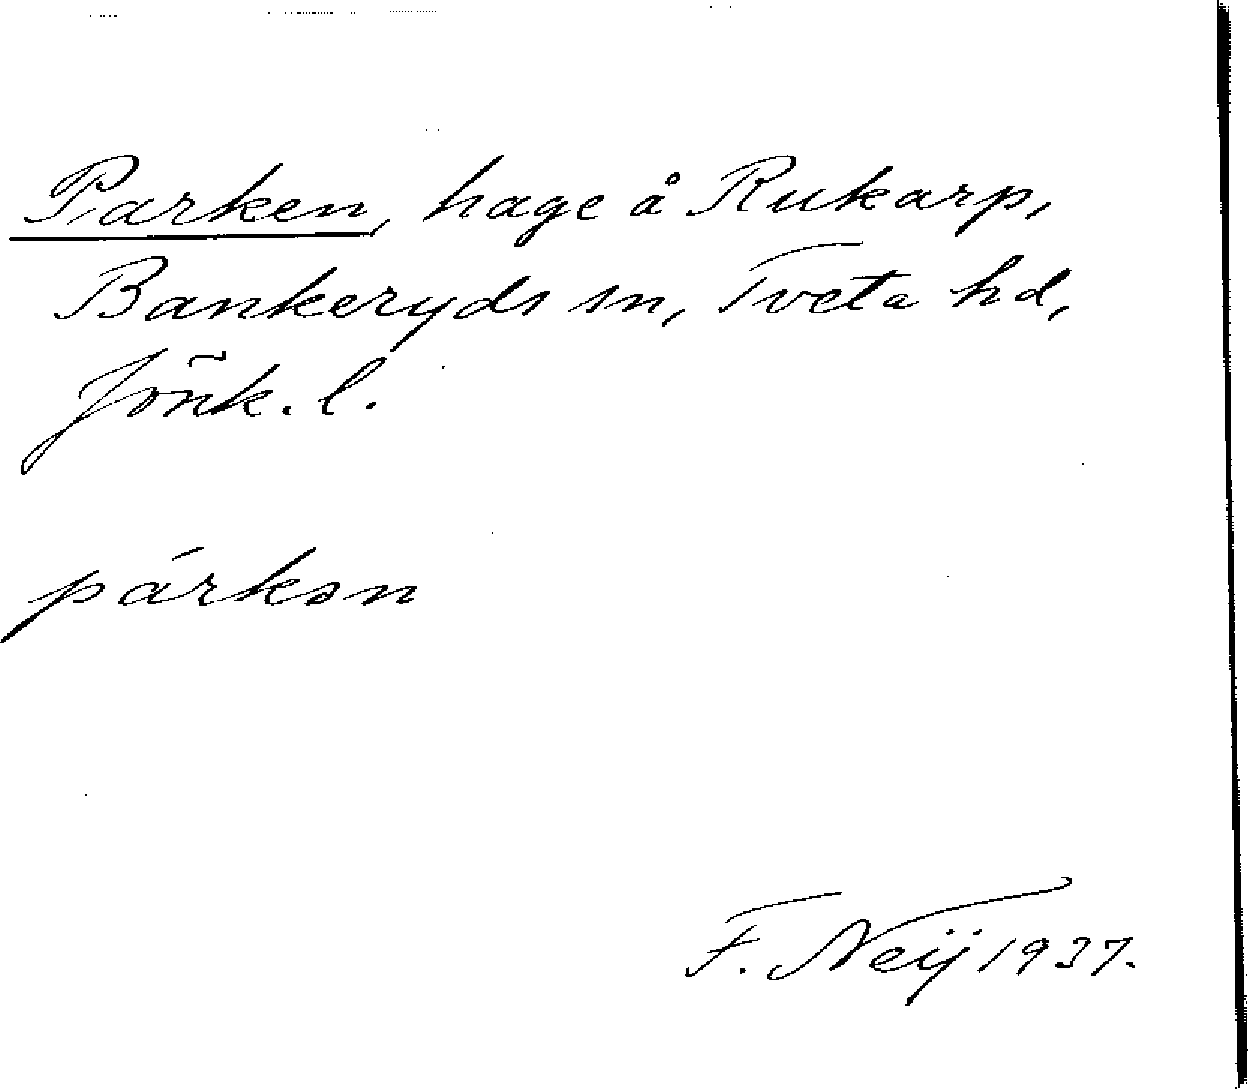 Parken, hage å Rukarp,
Bankeryds sn, Tveta hd,
Jönk. l.
párkən
F. Neij 1937.